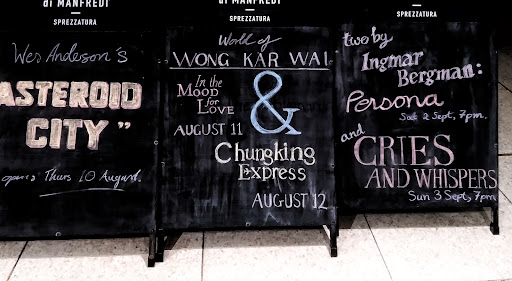 di MANFREDI
SPREZZATURA
Wes Anderson's
"ASTEROID
CITY"
opens Thurs 10 August.
di MANFREDI
SPREZZATURA
World of
WONG KAR WAI
In the
Mood
for
Love
AUGUST 11
&
Chungking
Express
AUGUST 12
SPREZZATURA
two by
Ingmar
Bergman:
Persona
Sat 2 Sept, 7pm.
and
CRIES
AND WHISPERS
Sun 3 Sept, 7pm